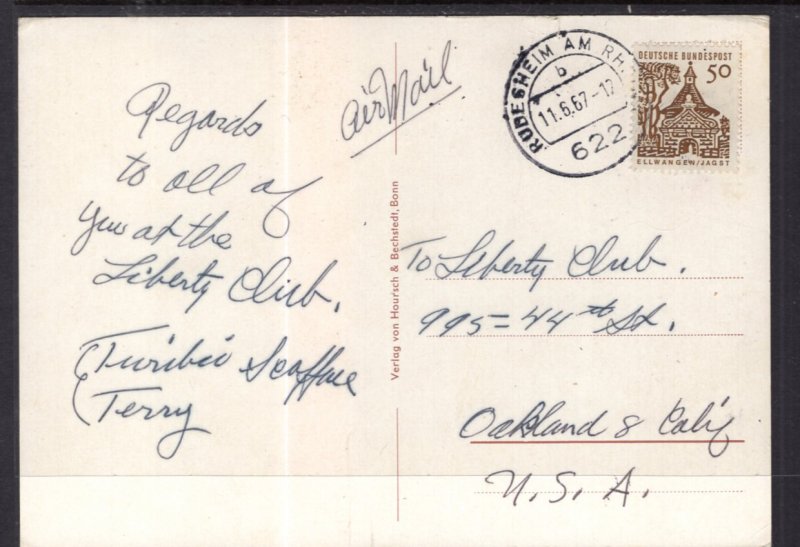 Regards
to all of
you at the
Liberty Club.
Terry
air Mail
Verlag von Hoursch & Bechstedt, Bonn
RÜDESHEIM AM RH.
b
11.6.67-17
622
DEUTSCHE BUNDESPOST
50
ELLWANGEN/JAGST
To Liberty Club.
995=44th St.
Oakland 8 Calif
U. S. A.